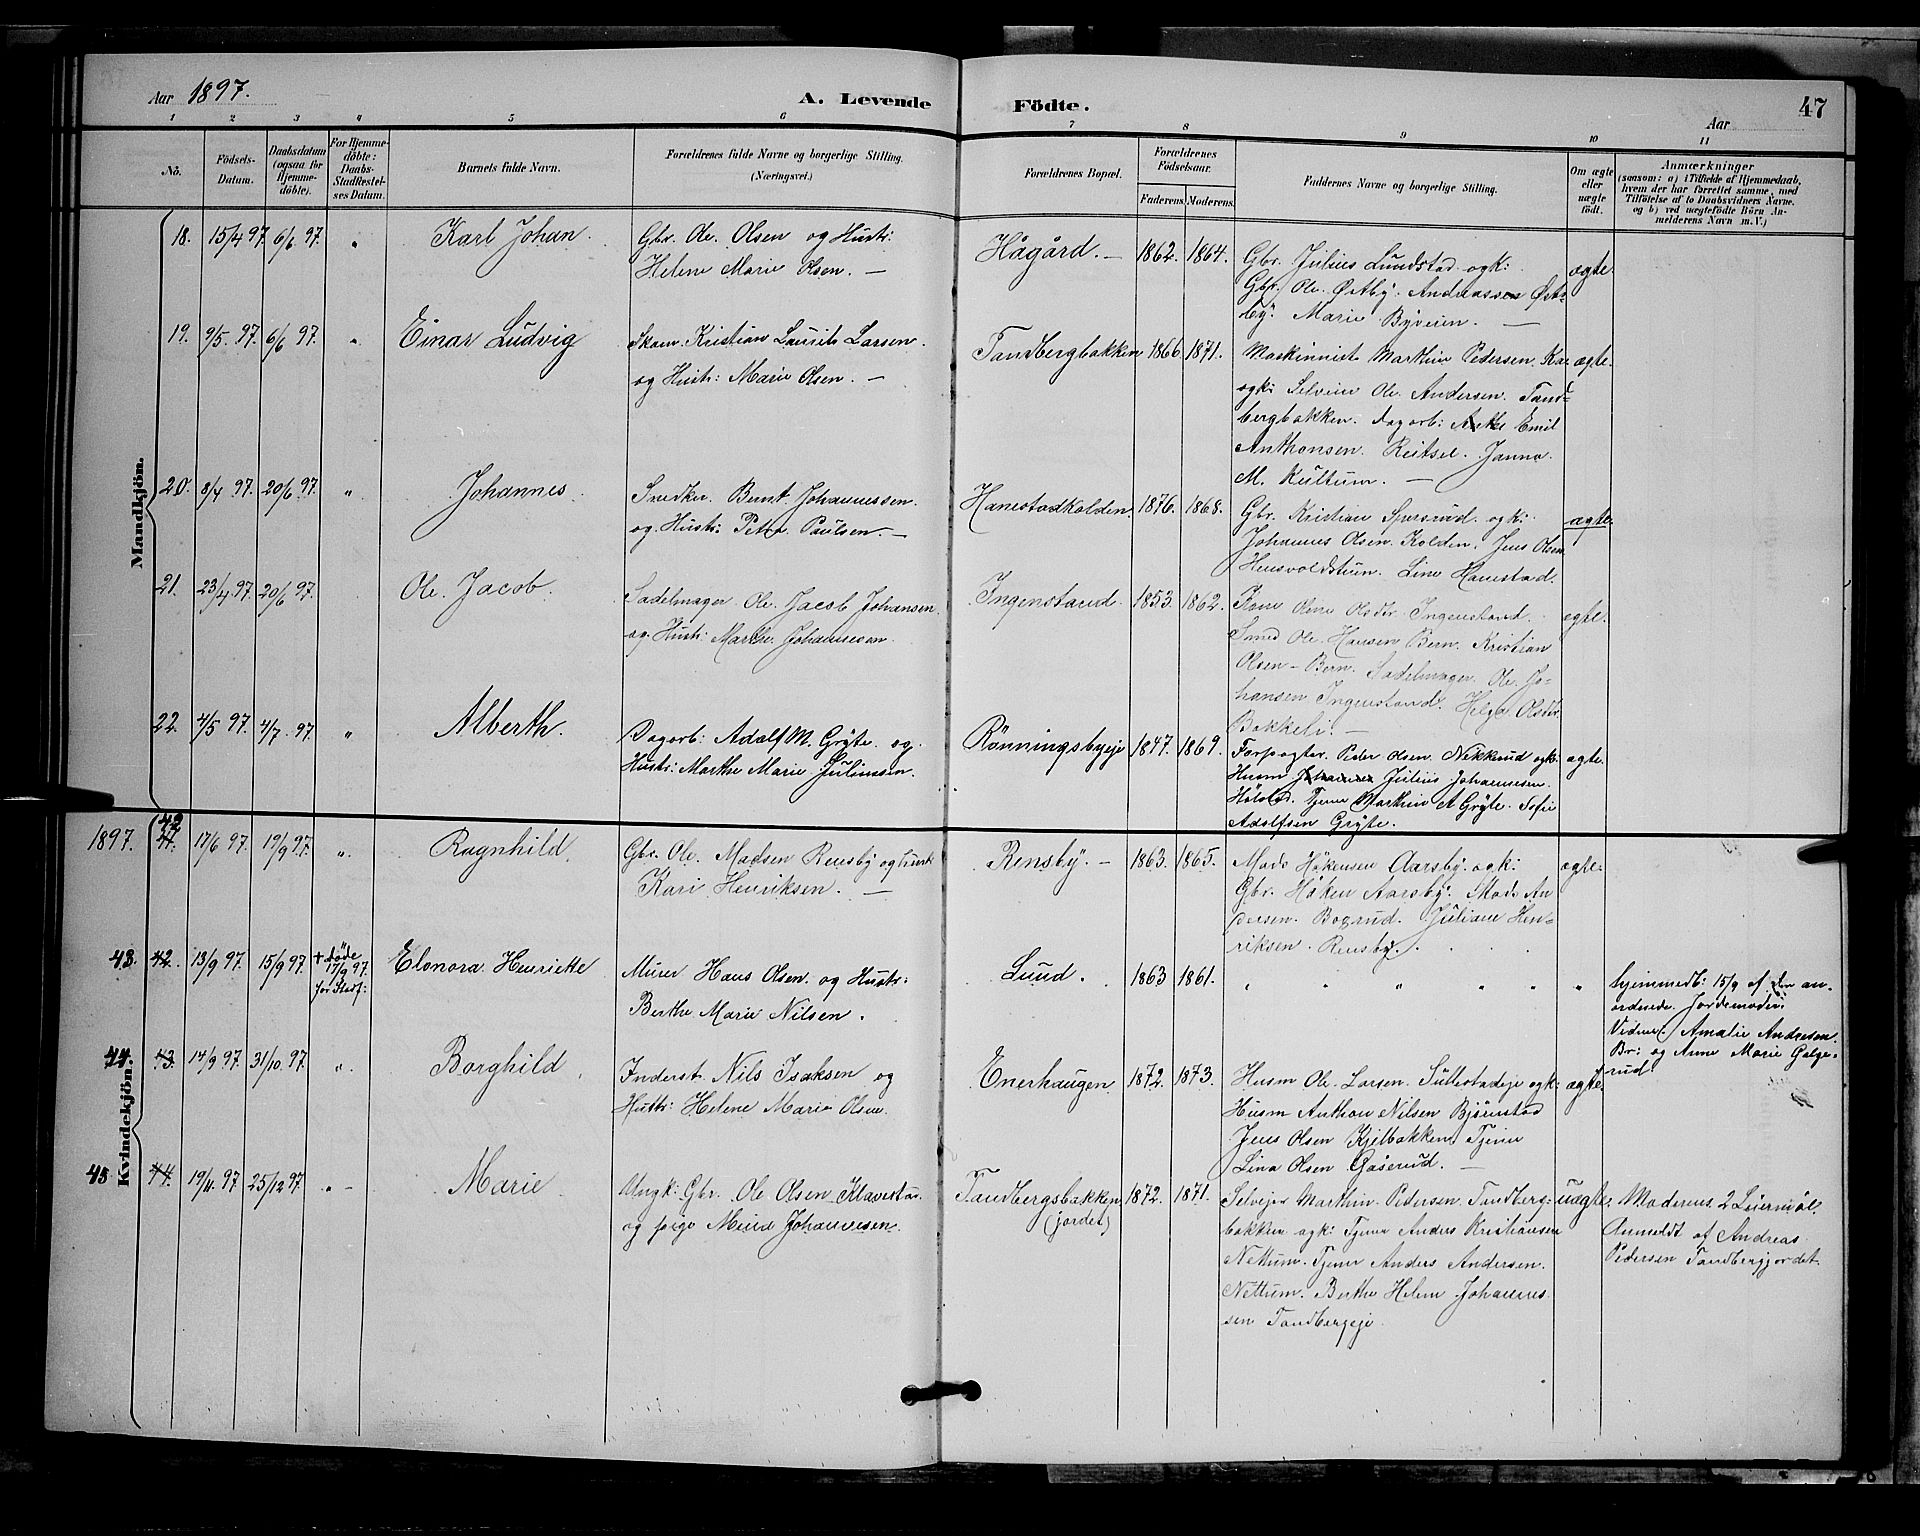 Aar 1897.
A. Levende Födte.
Aar
47
1 2 3 4 5 6 7 8 9 10 11
No.
Födsels-Datum.
Daabsdatum (ogsaa for Hjemmedöbte).
For Hjemmedöbte: Daabs-Stadfæstelses Datum.
Barnets fulde Navn.
Forældrenes fulde Navne og borgerlige Stilling. (Næringsvei.)
Forældrenes Bopæl.
Forældrenes Födselsaar.
Faderens. Moderens.
Faddernes Navne og borgerlige Stilling.
Om ægte eller uægte født.
Anmærkninger
(saasom: a) i Tilfælde af Hjemmedaab, hvem der har forrettet samme, med Tilföielse af to Daabsvidners Navne, og b) ved uægtefödte Börn Anmelderens Navn m. V.)
Mandkjön.
18. 15/4 97. 6/6 97. „ Karl Johan.
Gbr. Ole Olsen og Hustr:
Helene Marie Olsen. —
Hågård. — 1862. 1864.
Gbr. Julius Lundstad ogk:
Gbr. Ole Østby. Andreassen Øst-
by. Marie Byveien. —
ægte.
19. 9/5. 97. 6/6 97. „ Einar Ludvig
Skom. Kristian Laurits Larsen.
og Hustr: Marie Olsen. —
Tandbergbakken 1866 1871.
Maskinnist Marthin Pedersen.
ogk: Selveier Ole Andersen. Tand-
bergbakken. Dagarb: Emil
Anthonsen. Reitsel. Janna.
M. Kultum. —
ægte.
20. 8/4 97. 20/6 97. „ Johannes
Snedker. Bernt Johannessen
og Hustr: Petra Paulsen. —
Hanestadkolden 1876. 1868.
Gbr. Kristian Spersrud. ogk:
Johannes Olsen Kolden. Jens Olsen
Line Hanestad.
ægte.
21. 23/4 97. 20/6 97. Ole Jacob.
Sadelmager Ole Jacob Johansen
og Hustr: Marthe Johannesen
Ingenstand. 1853. 1862.
Kone Oline Olsdtr. Ingenstand.
Smed Ole Hansen Bern. Kristian
Olsen – Bern. Sadelmager Ole Jo-
hansen Ingenstand. Helga Olsdtr.
Bakkeli. —
ægte.
22. 4/5 97. 4/7. 97. „ Alberth.
Dagarb: Adolf M. Gryte og
Hustr: Marthe Marie Juliussen.
Rönningsbyeje 1847. 1869.
Forpagter Peder Olsen Nekkerud ogk:
Husm Johannes Julius Johannesen
Hölstad. Tjener Marthin A Gryte. Sofie
Adolfsen Gryte.
ægte.
1897.
Kvindekjön.
42 41. 17/6 97. 19/9 97. „ Ragnhild.
Gbr. Ole Madsen Rensby og Hustr
Kari Henriksen. —
Rensby. — 1863. 1865.
Mads Håkensen Aarsby. ogk:
Gbr. Håken Aarsby. Mads An
dersen. Bogrud. Juliane Hen-
riksen. Rensby.
ægte.
43. 42. 13/9 97. 15/9 97. + döde
17/9 97.
før Stadf:
Elonora Henriette
Murer Hans Olsen. og Hustr:
Berthe Marie Nilsen.
Lund. 1863 1861.
„ „ „ „ „ „ „
hjemmedb: 15/9 af den an-
ordnede Jordemoder:
Vidner: Amalie Andresen
Br: og Anne Marie Galge-
rud.
44. 43. 14/9 97. 31/10. 97. „ Borghild.
Inderst. Nils Isaksen og
Hustr: Helene Marie Olsen.
Enerhaugen 1872. 1873.
Husm Ole Larsen Sullestadeje ogk:
Husm Anthon Nilsen Bjørnstad
Jens Olsen Kjelbakken. Tjener
Lina Olsen Gaserud. —
ægte.
45 44. 19/11. 97 25/12 97. „ – Marie.
Ungk: Gbr. Ole Olsen
og pige Mina Johannesen.
Tandbergsbakken
(jordet)
1872. 1871.
Selvejer Marthin Pedersen. Tandberg-
bakken ogk: Tjener Anders Kristiansen
Nettum. Tjener Anders Andersen.
Nettum. Berthe Helene Johannes-
sen Tandbergeje.
uægte.
Moderens 2 Leiermål.
Anmeldt af Andreas
Pedersen Tandbergjordet.